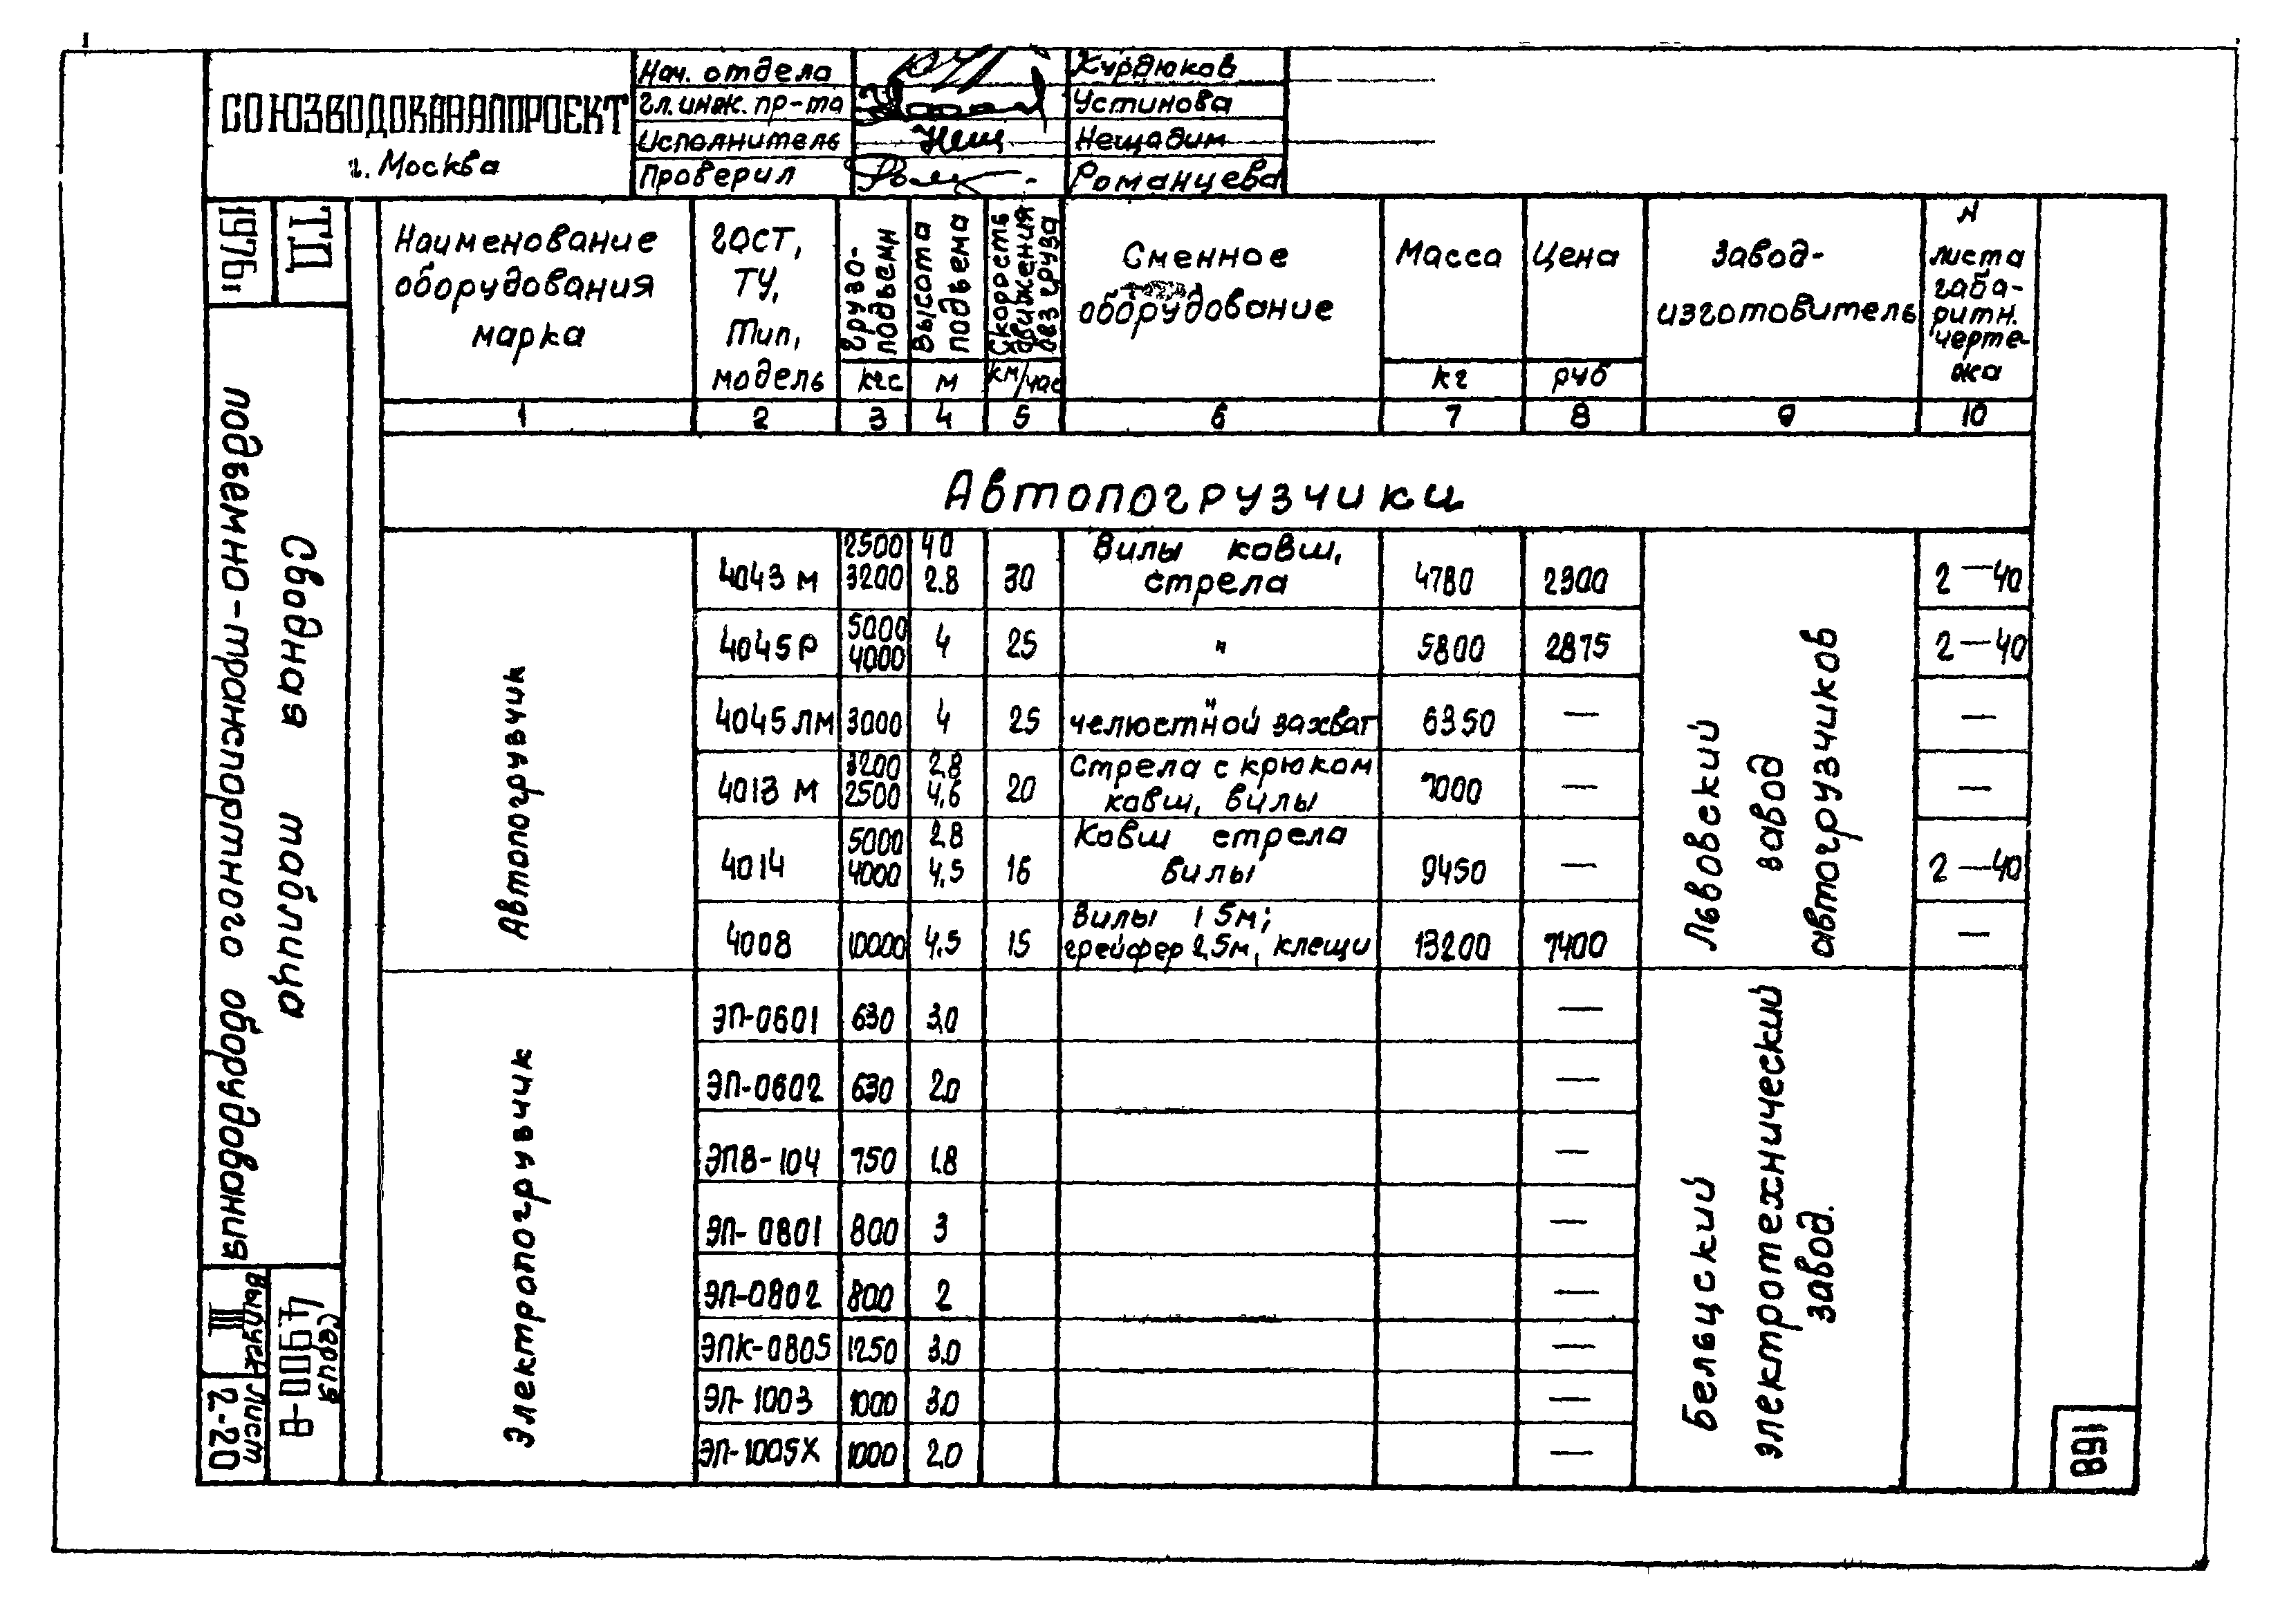 СОЮЗВОДОКАНАЛПРОЕКТ
г. Москва
Нач. отдела Хурдюков
Гл. инж. пр-та Устинова
Исполнитель Нещ Нещадим
Проверил Романцева
1976г.
ТД
Сводная таблица
подъемно-транспортного оборудования
Серия
Выпуск
III
Лист
2-20
Наименование оборудования марка
ГОСТ, ТУ, Тип, модель
Грузо-подъемн кгс
Высота подъема м
Скорость движения без груза км/час
Сменное оборудование
Масса кг
Цена руб
Завод-изготовитель
N листа габа-ритн. черте-жа
1 2 3 4 5 6 7 8 9 10
Автопогрузчики
Автопогрузчик
4043 м 2500 3200 40 2.8 30 Вилы ковш, стрела 4780 2300 2—40
4045Р 5000 4000 4 25 " 5800 2875 2—40
4045ЛМ 3000 4 25 " челюстной захват 6350 — —
4013 М 3200 2500 2.8 4,6 20 Стрела с крюком ковш, вилы 7000 — —
4014 5000 4000 2.8 4.5 16 Ковш стрела вилы 9450 — 2—40
4008 10000 4.5 15 Вилы 1 5м; грейфер 2,5м, клещи 13200 7400 —
Львовский завод автогрузчиков
Электропогрузчик
ЭП-0601 630 3,0 —
ЭП-0602 630 2.0 —
ЭПВ-104 750 1.8 —
ЭП-0801 800 3 —
ЭП-0802 800 2 —
ЭПК-0805 1250 3.0 —
ЭП-1003 1000 3.0 —
ЭП-1005Х 1000 2.0 —
Бельцский электротехнический завод.
168